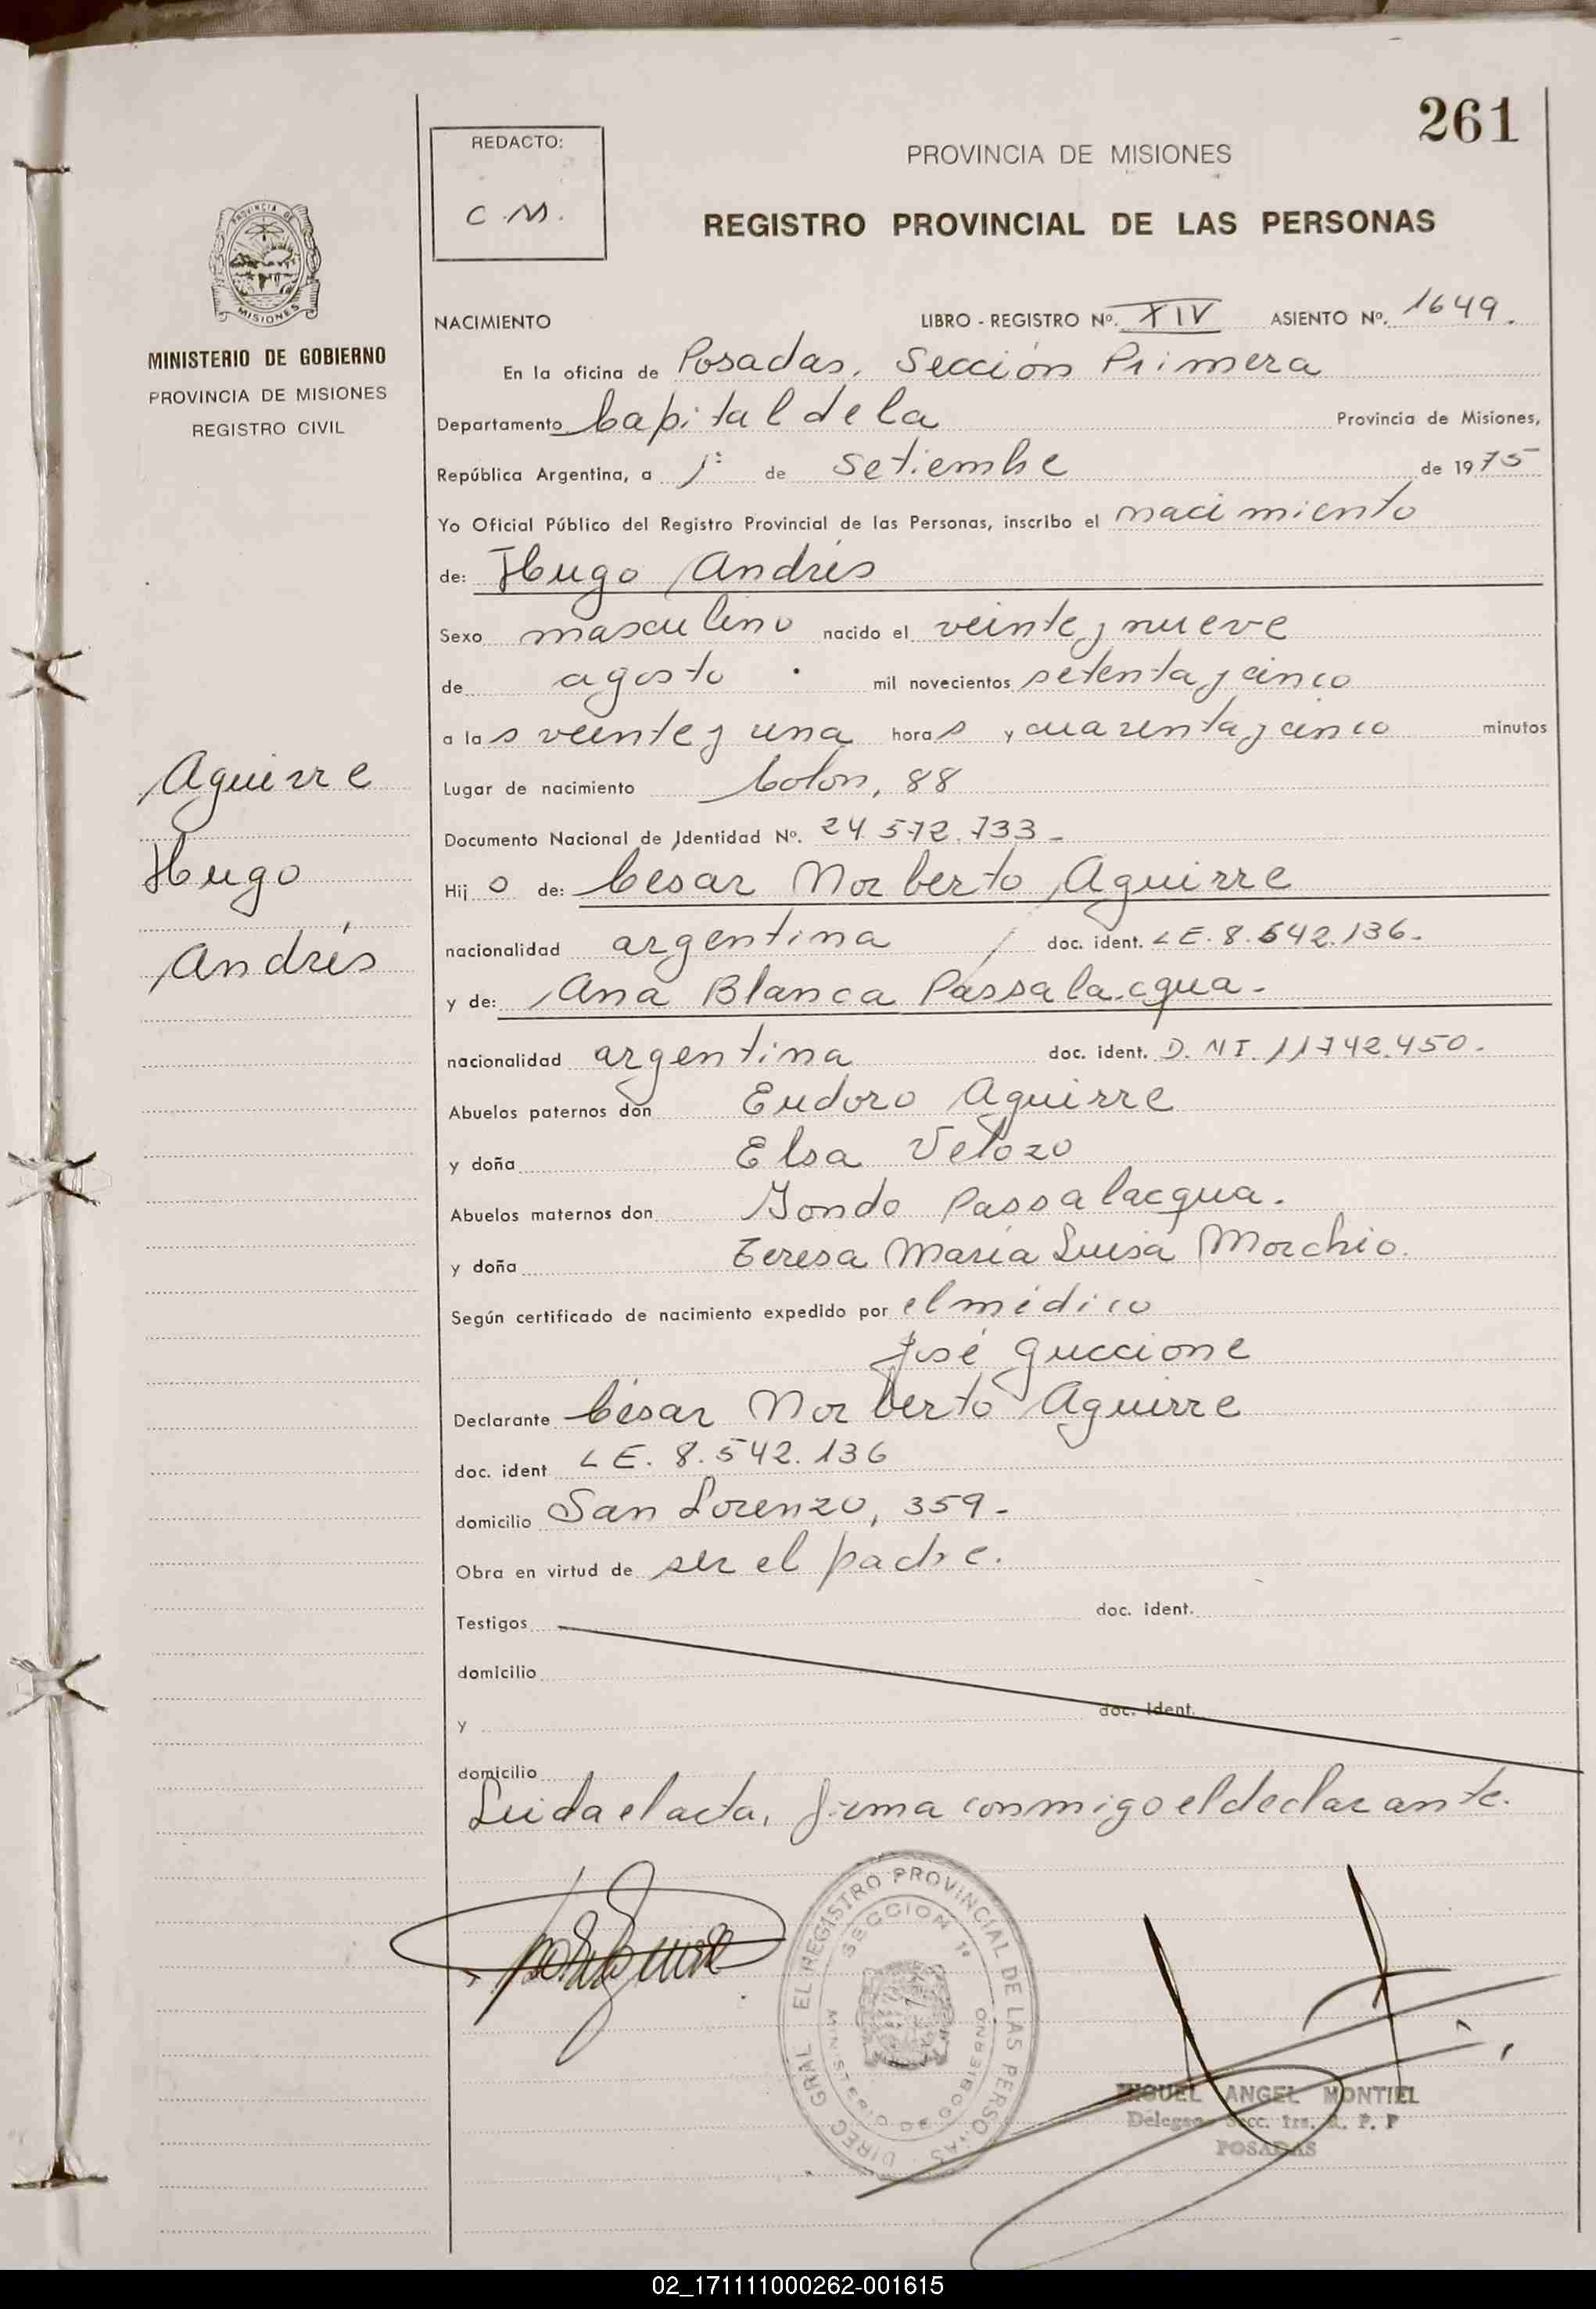 261
REDACTO:
C.M.
PROVINCIA DE MISIONES
REGISTRO PROVINCIAL DE LAS PERSONAS
PROVINCIA DE
MISIONES
MINISTERIO DE GOBIERNO
PROVINCIA DE MISIONES
REGISTRO CIVIL
NACIMIENTO LIBRO - REGISTRO Nº. XIV ASIENTO Nº. 1649.
En la oficina de Posadas, Sección Primera
Departamento Capital de la Provincia de Misiones,
República Argentina, a 1º de Setiembre de 1975
Yo Oficial Público del Registro Provincial de las Personas, inscribo el nacimiento
de: Hugo Andrés
Sexo masculino nacido el veinte y nueve
de agosto mil novecientos setenta y cinco
a las veinte y una horas y cuarenta y cinco minutos
Lugar de nacimiento Colon, 88
Documento Nacional de Identidad Nº. 24.572.733-
Hijo de: César Norberto Aguirre
nacionalidad argentina doc. ident. LE. 8.542.136.
y de: Ana Blanca Passalacqua.
nacionalidad argentina doc. ident. D.NI. 11742.450.
Abuelos paternos don Eudoro Aguirre
y doña Elsa Velozo
Abuelos maternos don Passalacqua.
y doña Teresa María Luisa Morchio.
Según certificado de nacimiento expedido por el médico
José Guccione
Declarante César Norberto Aguirre
doc. ident LE. 8.542.136
domicilio San Lorenzo, 359-
Obra en virtud de ser el padre.
Testigos doc. ident.
domicilio
y doc. ident.
domicilio
Leida el acta, firma conmigo el declarante.
Aguirre
Hugo
Andrés
DIREC GRAL EL REGISTRO PROVINCIAL DE LAS PERSONAS
SECCION 1º
MINISTERIO DE GOBIERNO
MIGUEL ANGEL MONTIEL
Secc. 1ra. R. P. P
POSADAS
02_171111000262-001615